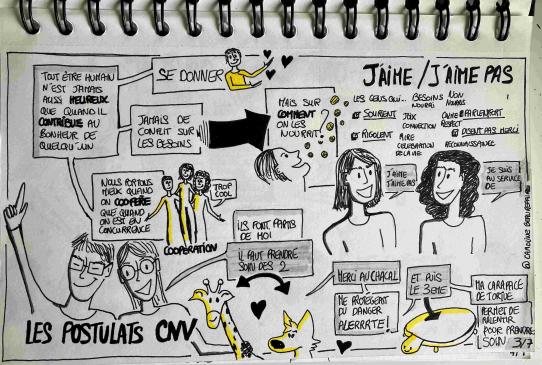 TOUT ÊTRE HUMAIN
N'EST JAMAIS
AUSSI HEUREUX
QUE QUAND IL
CONTRIBUE AU
BONHEUR DE
QUELQU'UN
SE DONNER
JAMAIS DE
CONFLIT SUR
LES BESOINS
MAIS SUR
COMMENT
ON LES
NOURRIT ?
J'AIME / J'AIME PAS
LES GENS QUI...
SOURIENT
RIGOLENT
BESOINS
NOURRIS
JOIE
CONNECTION
RIRE
CÉLÉBRATION
DE LA VIE
NON
NOURRIS
#PARLENFORT
RESPECT
DISENT PAS MERCI
RECONNAISSANCE
J'AIME
J'AIME PAS
JE SUIS
AU SERVICE
DE
NOUS PORTONS
MIEUX QUAND
ON COOPÈRE
QUE QUAND
ON EST EN
CONCURRENCE
TROP
COOL
COOPÉRATION
ILS FONT PARTIS
DE MOI
IL FAUT PRENDRE
SOIN DES 2
MERCI AU CHACAL
ME PROTÉGEANT
DU DANGER
ALERRRTE !
ET PUIS
LE 3EME
MA CARAPACE
DE TORTUE
PERMET DE
RALENTIR
POUR PRENDRE
SOIN
LES POSTULATS CNV
3/7